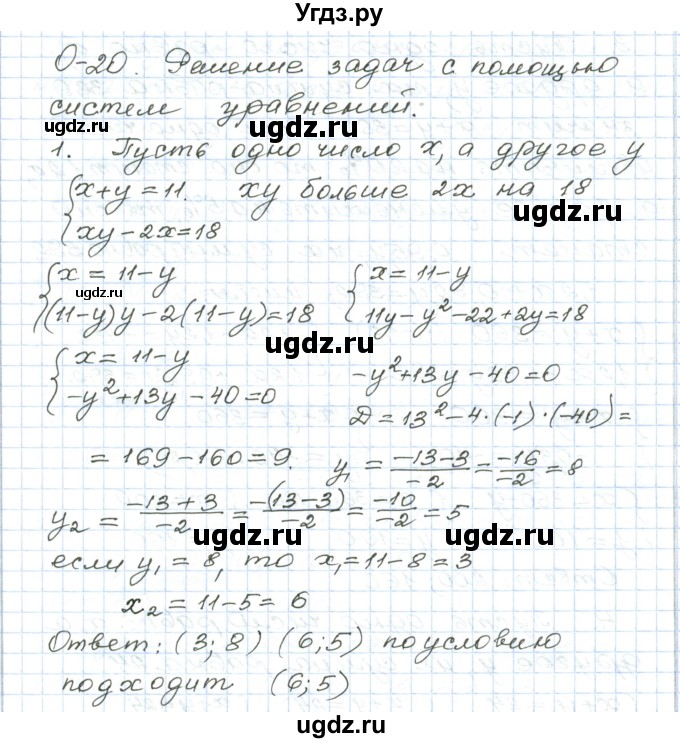 Угдз.ру
О-20. Решение задач с помощью
систем уравнений.
ugdz.ru ugdz.ru
1. Пусть одно число x, а другое y
{x+y=11. xy больше 2x на 18
{xy-2x=18
ugdz.ru
{x=11-y {x=11-y
ugdz.ru
{(11-y)y-2(11-y)=18 {11y-y²-22+2y=18
ugdz.ru
{x=11-y -y²+13y-40=0
{-y²+13y-40=0 D=13²-4·(-1)·(-40)=
ugdz.ru
=169-160=9. y₁=\frac{-13-3}{-2}=\frac{-16}{-2}=8
y₂=\frac{-13+3}{-2}=\frac{-(13-3)}{-2}=\frac{-10}{-2}=5
ugdz.ru
если y₁=8, то x₁=11-8=3
x₂=11-5=6
Ответ: (3;8) (6;5) по условию
подходит (6;5)
ugdz.ru ugdz.ru